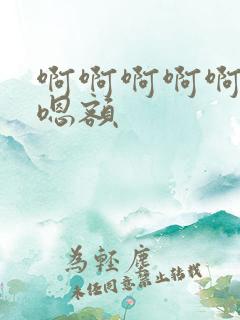 啊啊啊啊啊
嗯额
為輕塵
未经同意禁止转载